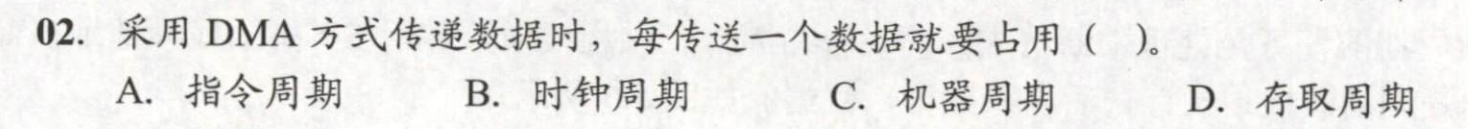 02. 采用 DMA 方式传递数据时，每传送一个数据就要占用（ ）。
A. 指令周期 B. 时钟周期 C. 机器周期 D. 存取周期